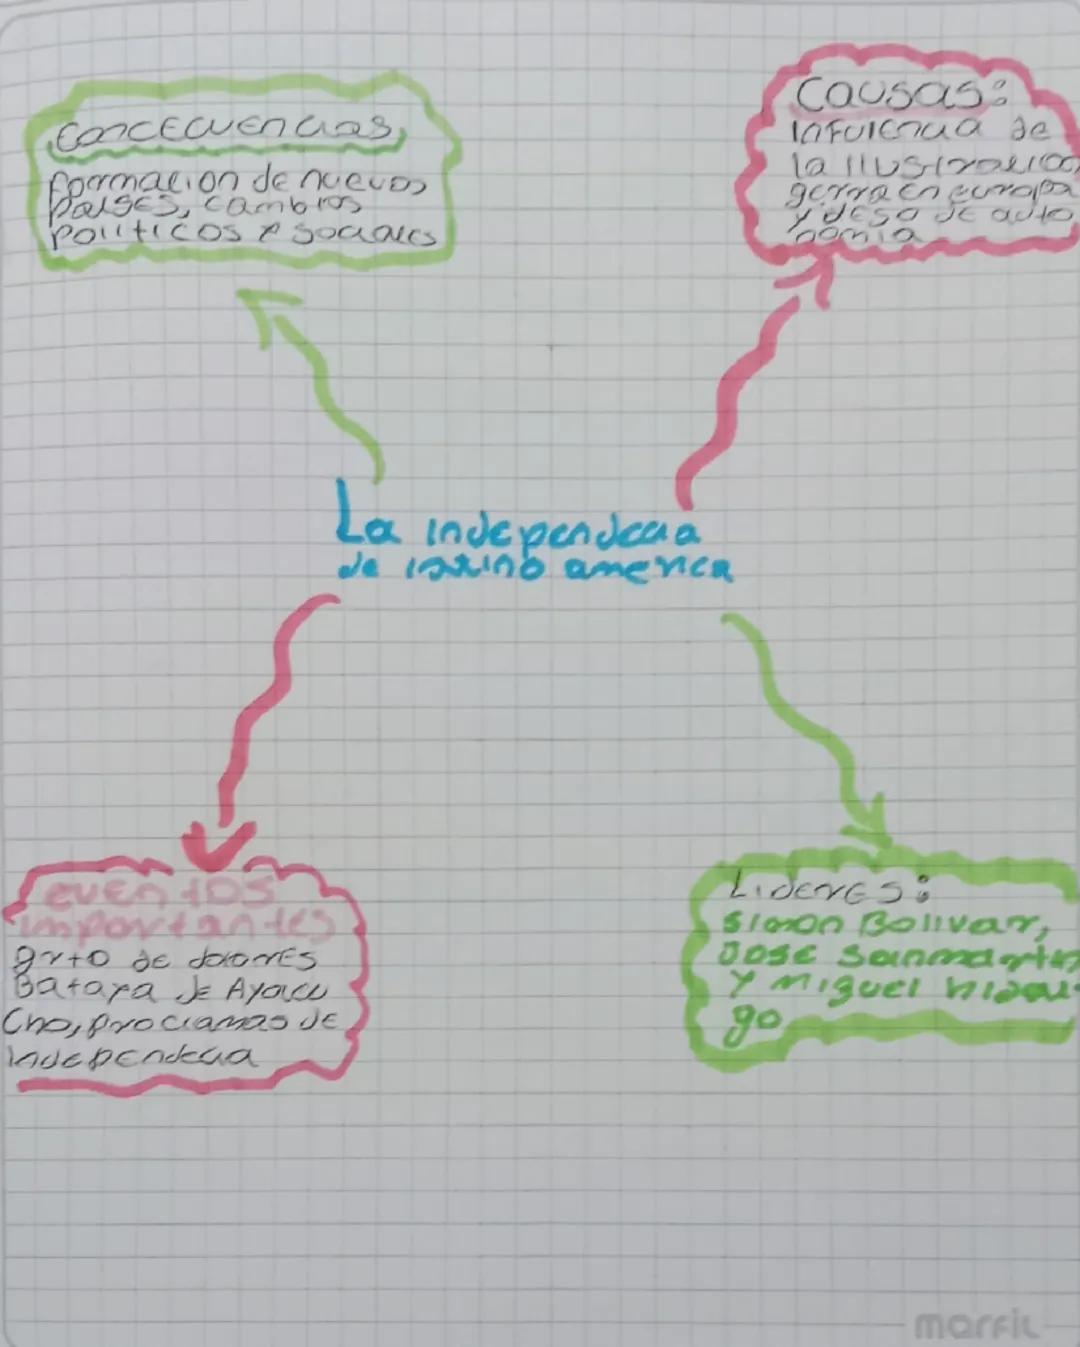 Concecuencias
formacion de nuevos
paises, cambios
politicos y sociales
Causas:
Infulencia de
la Ilustracion,
gerra en europa
y deso de auto
nomia
La independecia
de latino america
eventos
importantes
grto de dolores
Bataya de Ayacu
Cho, proclamas de
independecia
Lideres:
Simon Bolivar,
Jose Sanmartin
y Miguel hidal-
go
marfil